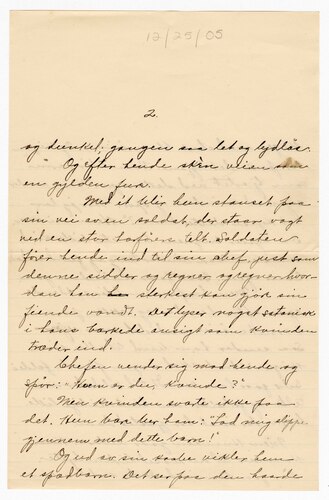 12/25/05
2.
og dunkel; gangen saa let og lydløs.
"Og efter hende skin veien som
en gylden fure.
Med it blir hun stanset paa
sin vei av en soldat, der staar vagt
ved en stor telt. Soldaten
fører hende ind til sin chef, just som
denne sidder og regner og regner hvor-
dan han sterkest kan gjøre sin
fiende vondt. Det lyser noget satanisk
i hans barkede ansigt som kvinden
træder ind.
Chefen vender sig mod hende og
spør: "Hvem er du, kvinde?"
Men kvinden svarte ikke paa
det. Hun bare ber ham: "Lad mig slippe
gjennem med dette barn!"
Og ud av sin kaabe vikler hun
et spædbarn. Det ser paa den haarde